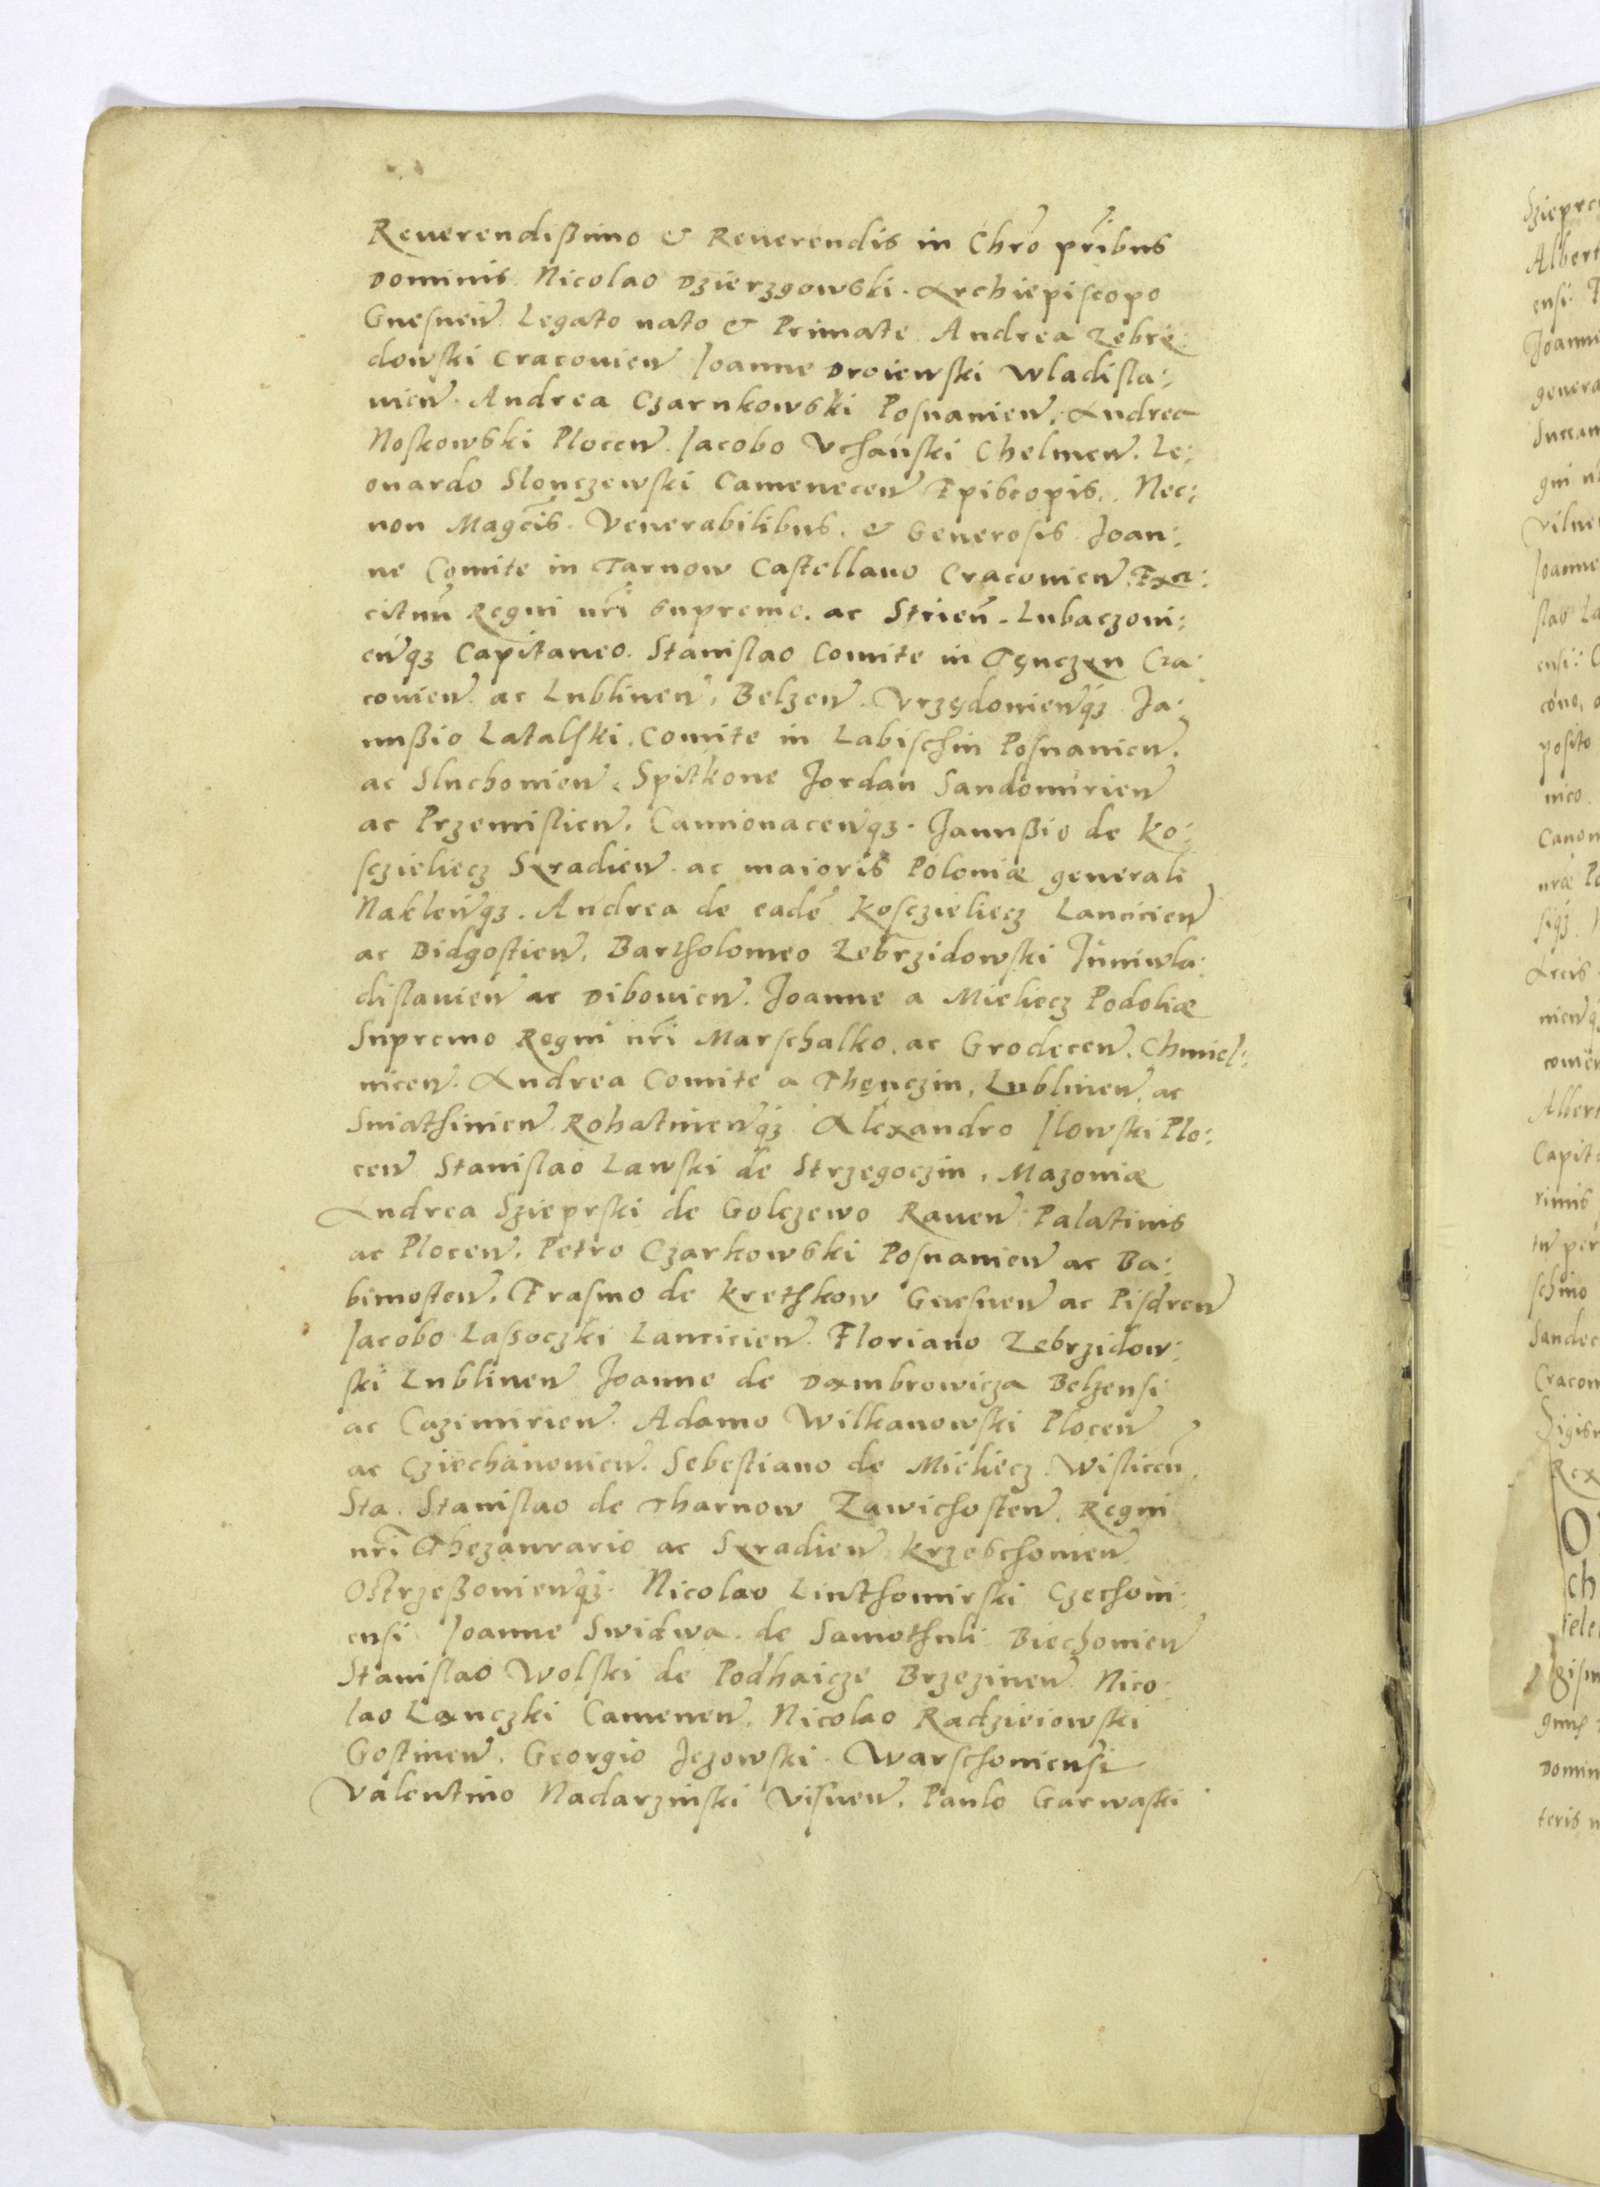 Reuerendißimo & Reuerendis in Chr̃o pr̃ibus
Dominis Nicolao Dzierzgowski. Archiepiscopo
Gnesneñ Legato nato & Primate Andrea Zebre
dowski Cracouieñ Joanne Droiewski Wladisla:
uieñ. Andrea Czarnkowski Posnanieñ. Andrea
Noskowski Ploceñ. Jacobo Vchański Chelmeñ. Le:
onardo Slonczewski Cameneceñ Episcopis. Nec:
non Magc̃is. Venerabilibus. & Generosis Joan:
ne Comite in Tarnow Castellano Cracouieñ. Exer:
cituũ Regni nr̃i supremo. ac Strieñ. Lubaczoui:
eñqz Capitaneo. Stanislao Comite in Tęnczyn Cra:
couieñ ac Lublineñ, Belzeñ. Vrzędouieñqz Ja:
nußio Latalski. Comite in Labischin Posnanieñ.
ac Sluchouieñ. Spitkone Jordan Sandomirieñ
ac Przemislieñ. Camionaceñqz. Janußio de Ko:
sczieliecz Syradieñ. ac maioris Poloniæ generali
Nakleñqz. Andrea de eadẽ Kosczieliecz Lancicieñ
ac Bidgostieñ. Bartholomeo Zebrzidowski Juniwla:
dislauieñ ac Dibouieñ. Joanne a Mieliecz Podoliæ
Supremo Regni nr̃i Marschalko. ac Grodeceñ. Chmiel:
niceñ. Andrea Comite a Thęnczin, Lublineñ. ac
Sniathinieñ Rohatineñqz Alexandro Ilowski Plo:
ceñ Stanislao Lawski de Strzegoczin, Mazouiæ
Andrea Szieprski de Golczewo Raueñ Palatinis
ac Ploceñ. Petro Czarkowski Posnanieñ ac Ba:
bimosteñ, Erasmo de Krethkow Gnesneñ ac Pisdreñ
Jacobo Lassoczki Lancicieñ. Floriano Zebrzidow:
ski Lublineñ Joanne de Dambrowicza Belzensi
ac Cazimirieñ. Adamo Wilkanowski Ploceñ
ac Cziechanouieñ. Sebestiano de Mieliecz. Wisliceñ.
Sta. Stanislao de Tharnow Zawichosteñ. Regni
nr̃i Thezaurario ac Syradieñ Krzebchouieñ
Ostrzeßouieñqz. Nicolao Linthomirski Czechoui:
ensi Joanne Swidwa. de Samothuli Biechouieñ
Stanislao Wolski de Podhaicze Brzezineñ. Nico:
lao Lanczki Cameneñ. Nicolao Radzieiowski
Gostineñ. Georgio Jezowski. Warschouiensi
Valentino Nadarzinski Visneñ. Paulo Garwaski